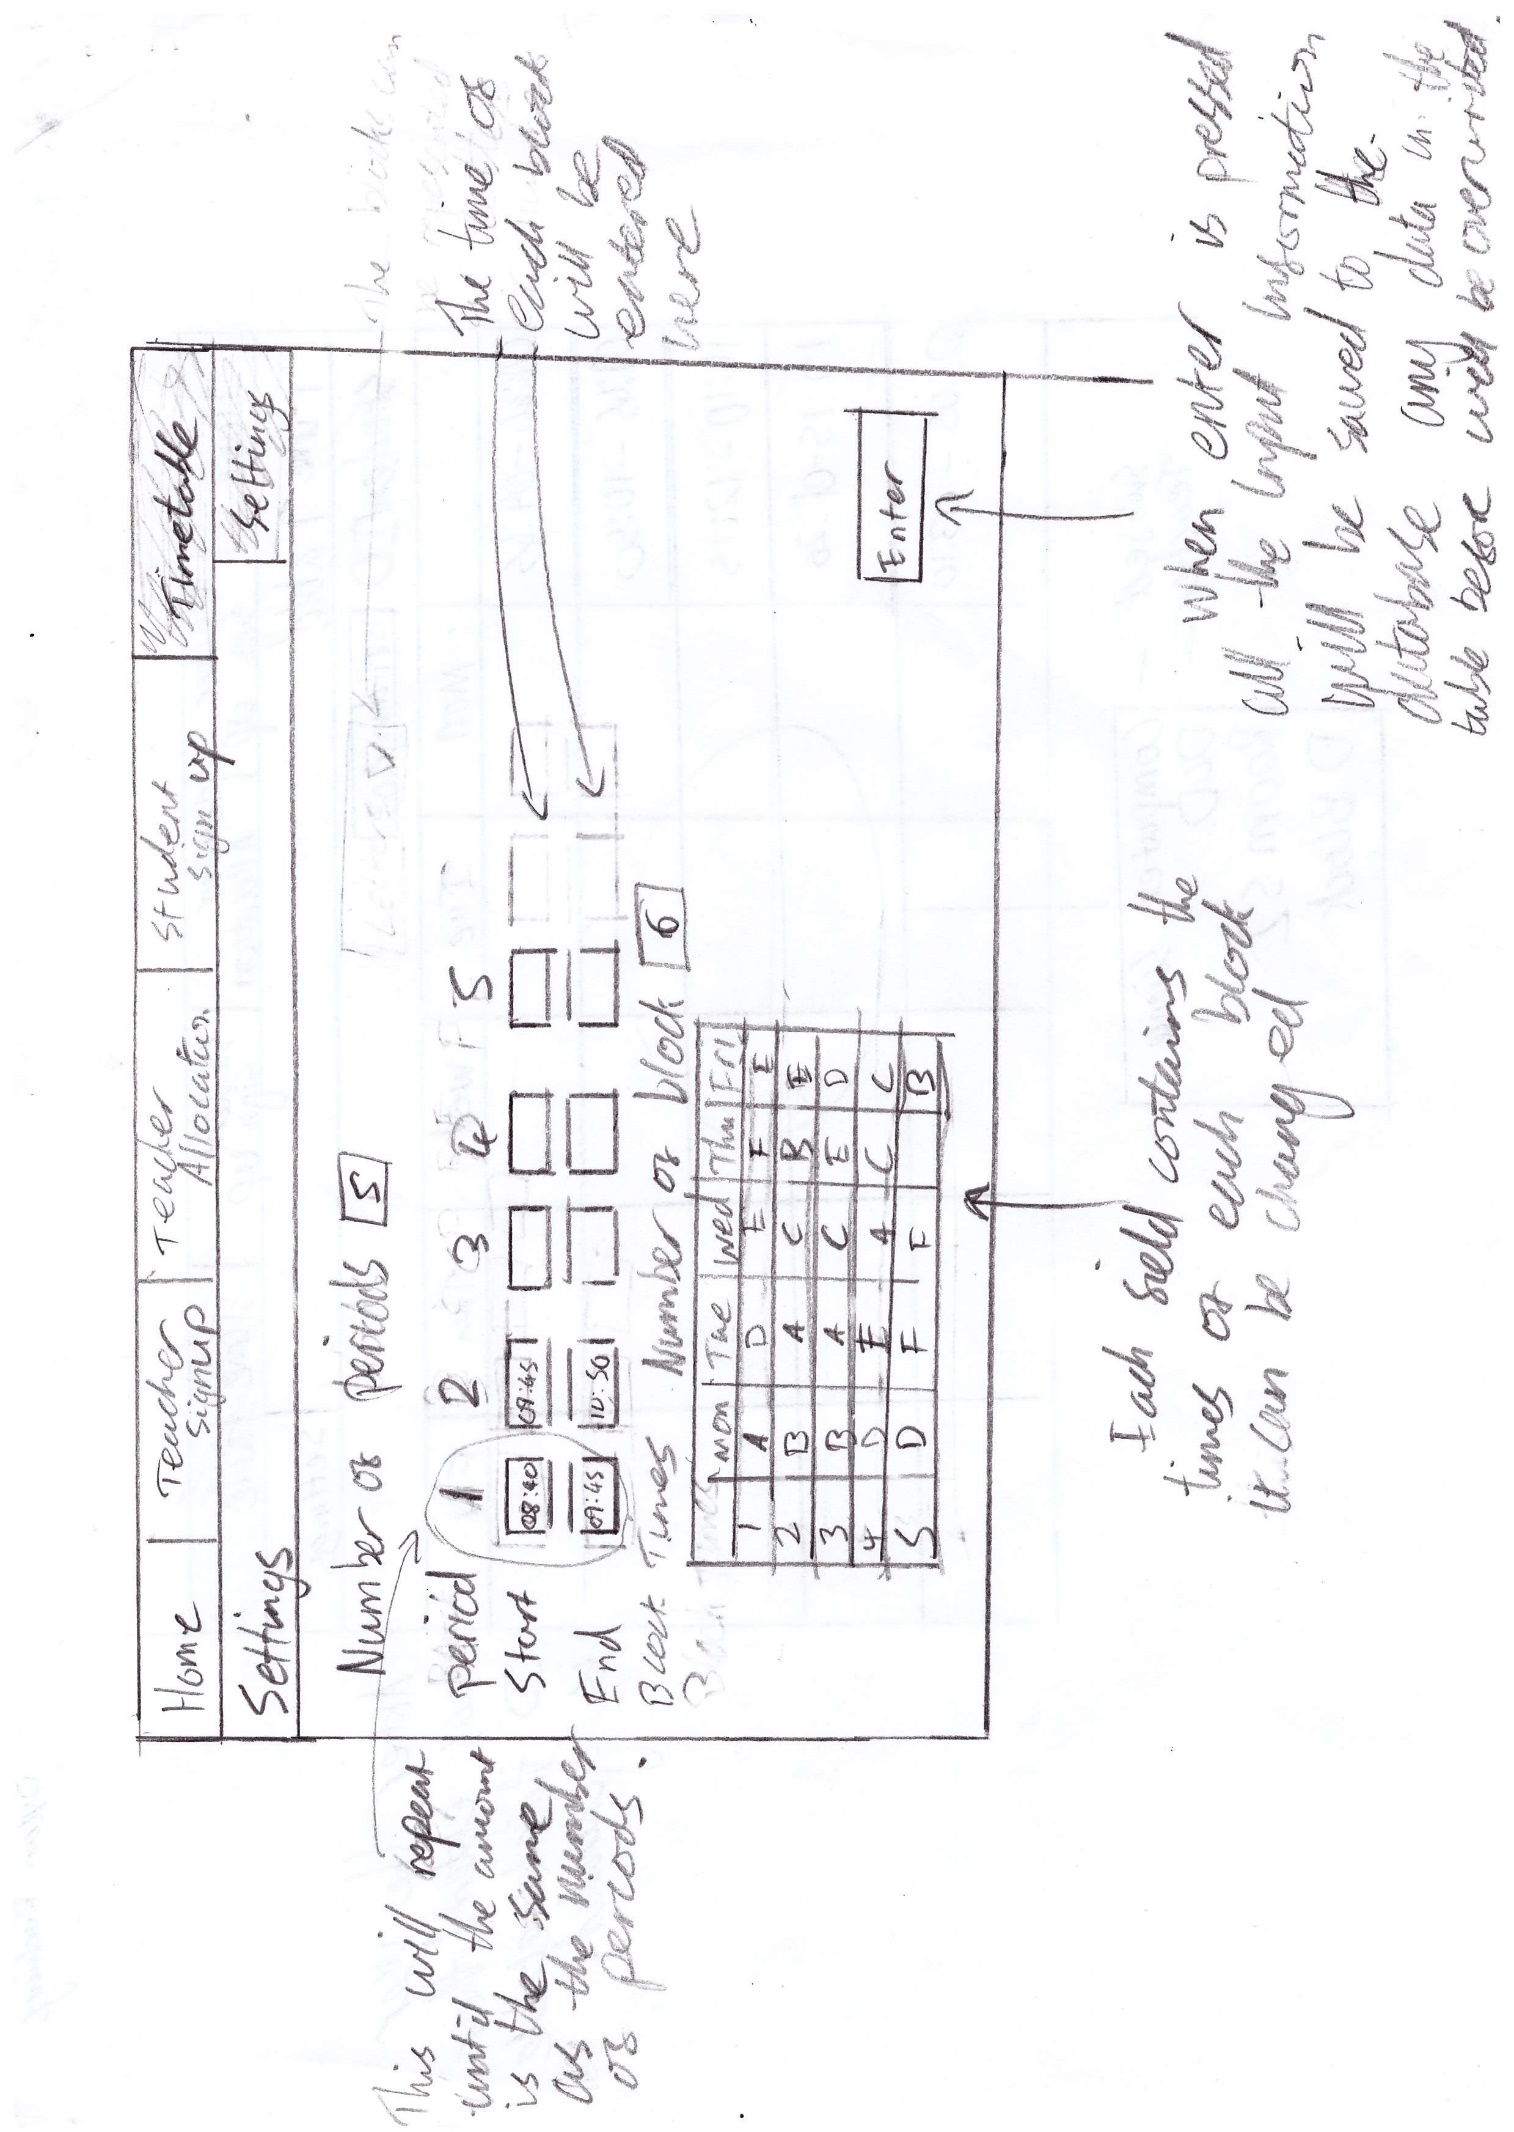 Home
Teacher
Signup
Teacher
Allocation
Student
Sign up
Timetable
Settings
Settings
Number of periods 5
period 1 2 3 4 5
Start 08:40 09:45
End 09:45 10:50
Block Times Number of block 6
Mon Tue Wed Thu Fri
1 A D E F E
2 B A C B E
3 B A C E D
4 D E A C C
5 D F F B
Enter
This will repeat
until the amount
is the same
as the number
of periods.
The blocks can
The time of
each block
will be
entered
here
Each field contains the
times of each block
it can be changed
When enter is pressed
all the input information
will be saved to the
database any data in the
table before will be overwrited.